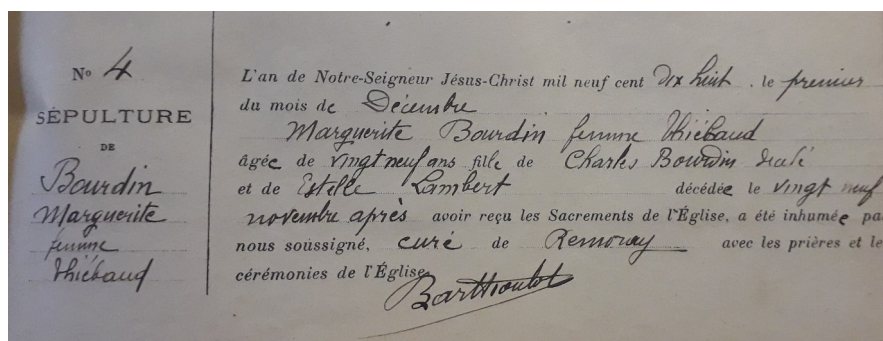 No 4
SÉPULTURE
DE
Bourdin
Marguerite
femme
Thiébaud
L'an de Notre-Seigneur Jésus-Christ mil neuf cent dix huit, le premier
du mois de Décembre
Marguerite Bourdin femme Thiébaud
âgée de vingt neuf ans fille de Charles Bourdin
et de Estelle Lambert décédée le vingt neuf
novembre après avoir reçu les Sacrements de l'Église, a été inhumée pa
nous soussigné, curé de Remoray avec les prières et le
cérémonies de l'Église
Barthoulot